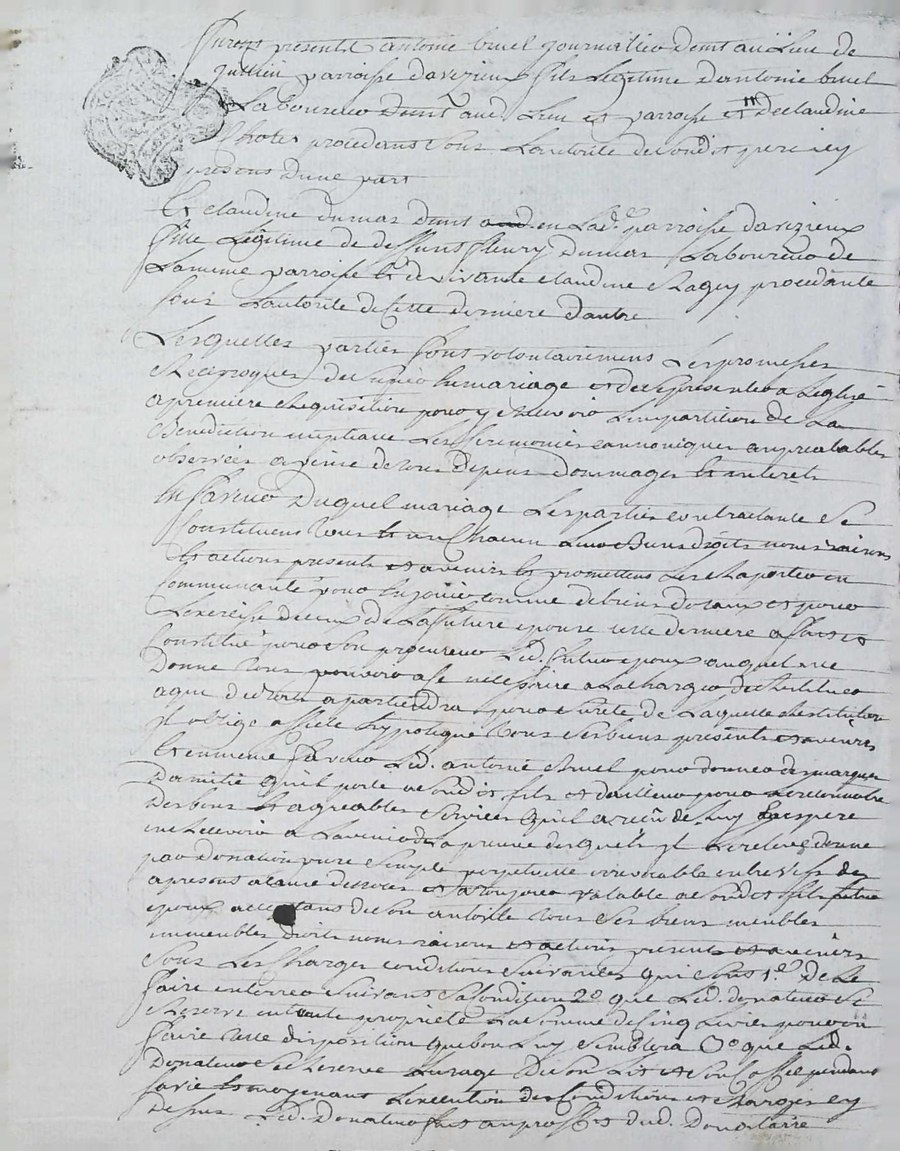 furent presents antoine bruel journalier demt au lieu de
parroisse davezieux fils Legitime dantoine bruel
Laboureur demt aud. Lieu et parroisse et de claudine
procedant sous Lautorite de sond. pere icy
present dune part
Et claudine dumas demt en Lad.e parroisse davezieux
fille Legitime de deffunt fleury dumas Laboureur de
La meme parroisse et de vivante claudine procedante
sous Lautorite de cette derniere dautre
Lesquelles parties font volontairement Les promesses
Reciproques de sunir en mariage et de se presenter a Leglise
a premiere Requisition pour y Recevoir Limpartition de La
Benediction nuptiale Les Ceremonies cannoniques au prealable
observées a peine de tous depens dommages et interets
En faveur duquel mariage Les parties contractantes se
Constituent tous et un chacun Leurs Biens droits noms raisons
et actions presents et avenir et promettent Les apporter en
Communauté pour en jouir comme de biens dotaux et pour
Lexercise de ceux de La future epouse cette derniere a fait et
Constitué pour son procureur Led. futur epoux auquel elle
Donne tous pouvoirs a ce necessaire a La charge de Restituer
a qui de droit apartiendra pour sureté de Laquelle Restitution
il oblige affecte hypoteque tous ses biens presents et avenir
Et en meme faveur Led. antoine bruel pour donner des marques
Damitié quil porte a sond. fils et dailleurs pour Le reconnoitre
Des bons et agreables services quil a reçu de Luy et espere
en Recevoir a Lavenir de La preuve desquels il Le releve donne
par Donation pure simple perpetuelle irrevocable entre vifs des
a present a cause de noces et a toujours valable a sond. fils futur
epoux acceptant de son autorité tous ses biens meubles
immeubles droits noms raisons et actions presents et avenirs
sous Les Charges conditions suivantes qui sont 1.o de Le
faire enterrer suivant sa Condition 2.o que Led. donateur se
Reserve en toute proprieté La somme de Cinq Livres pour en
faire telle disposition que bon Luy semblera 3.o que Led.
Donateur se Reserve Lusage de son Lit et son coffre pendant
sa vie et moyenant Lexecution des Conditions et charges cy
dessus Led. Donateur fait au proffit dud. Donataire